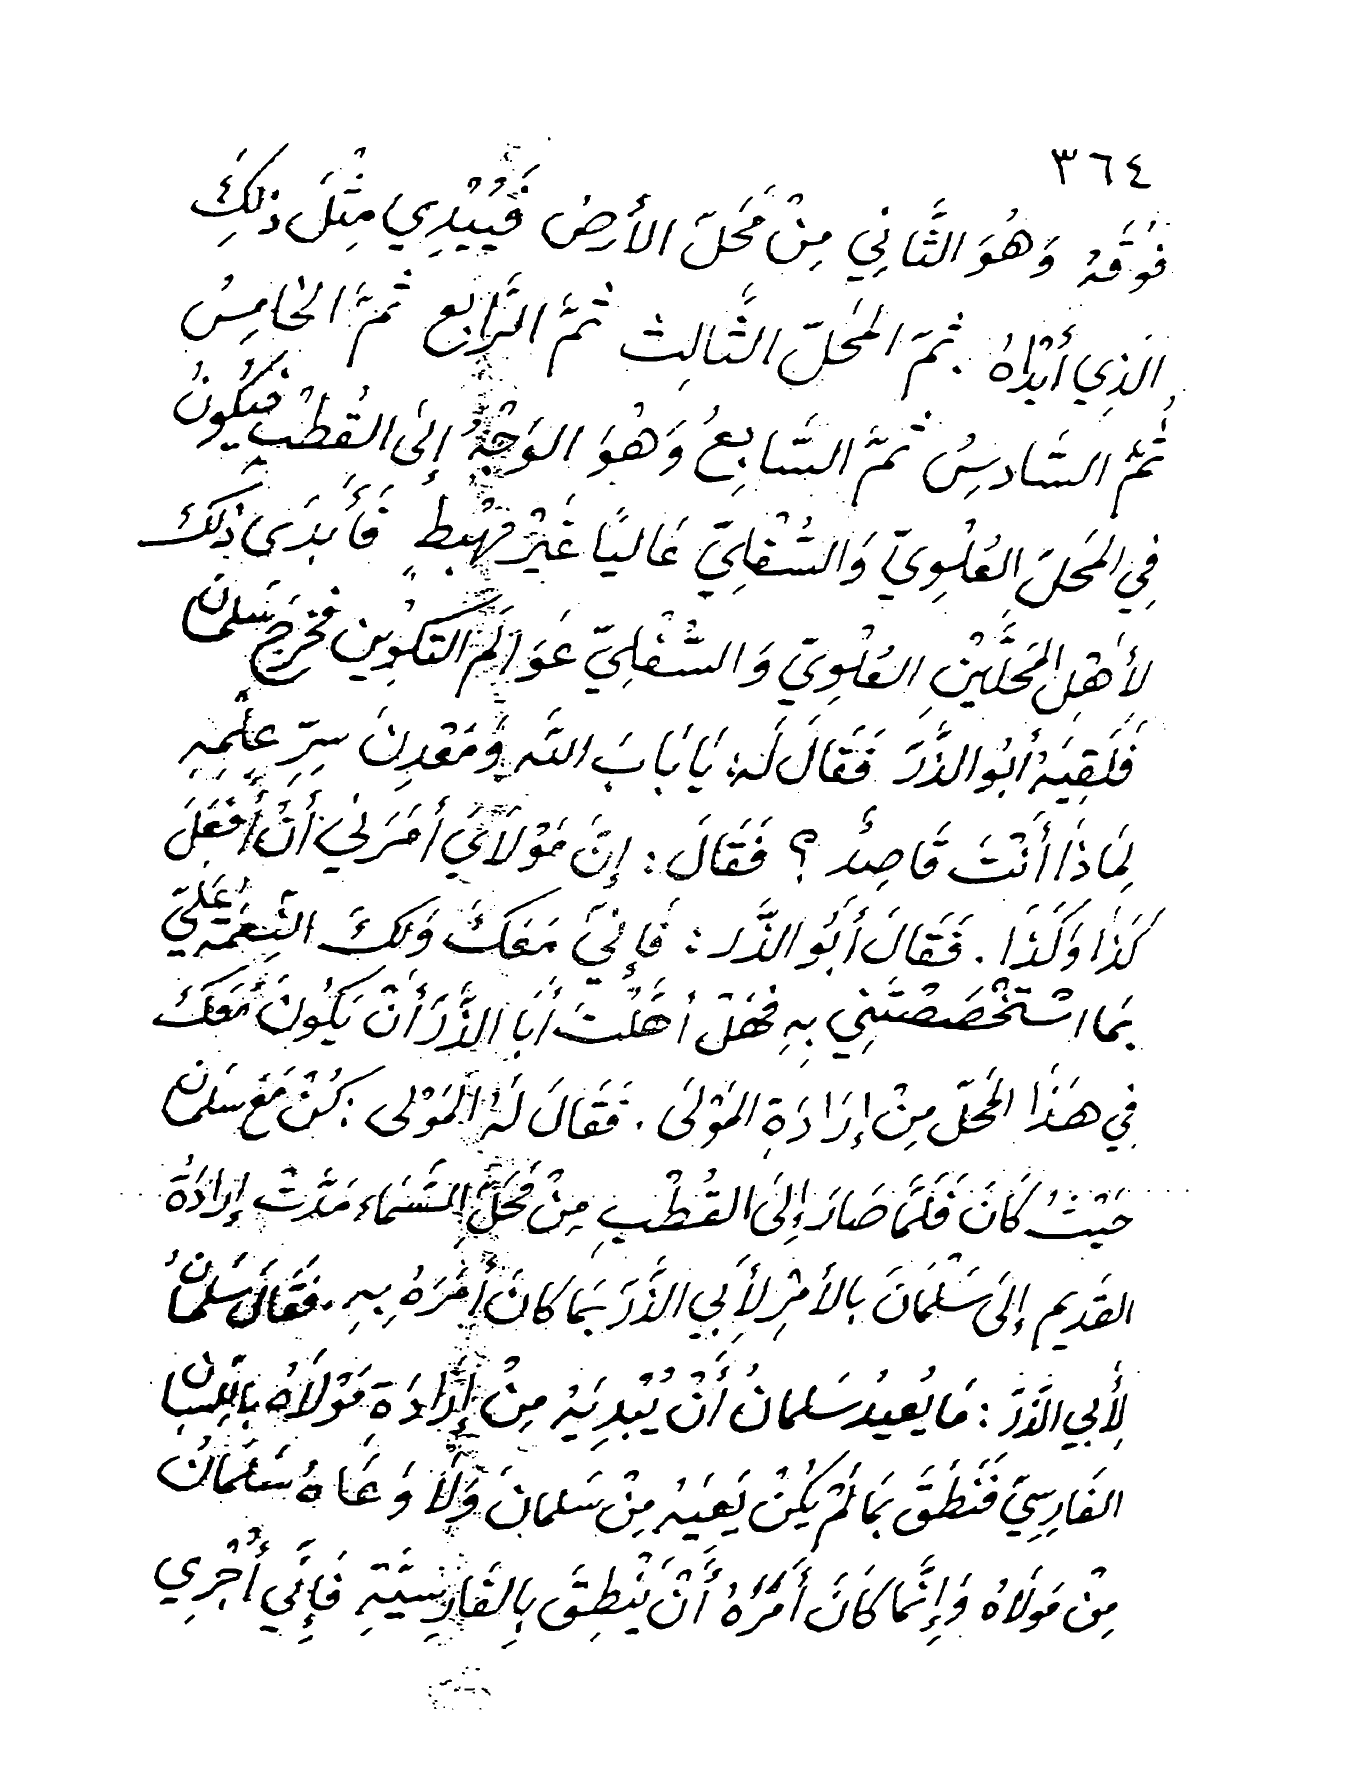 ٣٦٤
فَوْقَهُ وَهُوَ الثَّانِي مِنْ مَحَلّ الأَرضِ فَيُبْدِي مِثْلَ ذلِكَ
الَّذِي أَبْدَاهُ . ثمَّ المَحلّ الثَّالِث ثُمَّ الرَّابِع ثُمَّ الخَامِسُ
ثُمَّ السَّادِسُ ثُمَّ السَّابِعُ وَهْوَ الوَجْهُ إِلى القُطْبِ فَيَكُونُ
فِي المَحَلّ العُلْوِيّ وَالسُّفْلِيّ عَاليًا غَيْرَ مُهْبِطٍ فَأَبدَى ذلِكَ
لأَهْلِ المَحَلَّيْنِ العُلْوِيّ وَالسُّفْلِيّ عَوَالَم التَكْوِين فَخَرجَ سَلمان
فَلَقِيَهُ أَبُو الذَّرّ فَقَالَ لَهُ: يَا بَابَ اللَّه وَمَعْدِنَ سِرِّ عِلْمِهِ
لِمَاذَا أَنْتَ قَاصِدٌ ؟ فَقَالَ : إِنَّ مَوْلَايَ أَمَرَنِي أَنْ أَفْعَلَ
كَذَا وَكَذَا . فَقَالَ أَبُو الذَّرّ : فَإِنِّي مَعَكَ وَلكَ النِّعْمَةُ عَلَيّ
بَمَا اسْتَخْصَصْتَنِي بِهِ فَهَلْ أَهَّلْتَ أَبَا الذَّرّ أَنْ يَكُونَ مَعَكَ
فِي هذَا المَحلّ مِنْ إِرَادَةِ المَوْلَى . فَقَالَ لَهُ المَوْلى : كُنْ مَعَ سَلمان
حَيْثُ كَانَ فَلَمَّا صَارَ إِلَى القُطْبِ مِنْ مَحَلِّ السَّمَاء مَدَّتْ إِرادَةُ
القَدِيم إِلَى سَلْمَانَ بِالأَمْرِ لأَبِي الذَّرّ بَمَا كانَ أَمَرَهُ بِهِ . فَقَالَ سَلْمَانُ
لِأَبِي الذَرّ : مَا يُعِيدُ سَلمانُ أَنْ يُبْدِيَهُ مِنْ إِرَادَةِ مَوْلَاهُ بِاللِّسَان
الفَارِسِيّ فَنَطَقَ بَمَا لَمْ يَكُنْ يَعِيَهُ مِنْ سَلمانَ وَلَا وَعَاهُ سَلْمَانُ
مِنْ مَوْلَاهُ وَإِنَّمَا كَانَ أَمْرُهُ أَنْ يَنْطِقَ بِالفَارِسِيَّةِ فَإِنِّي أُجْرِي